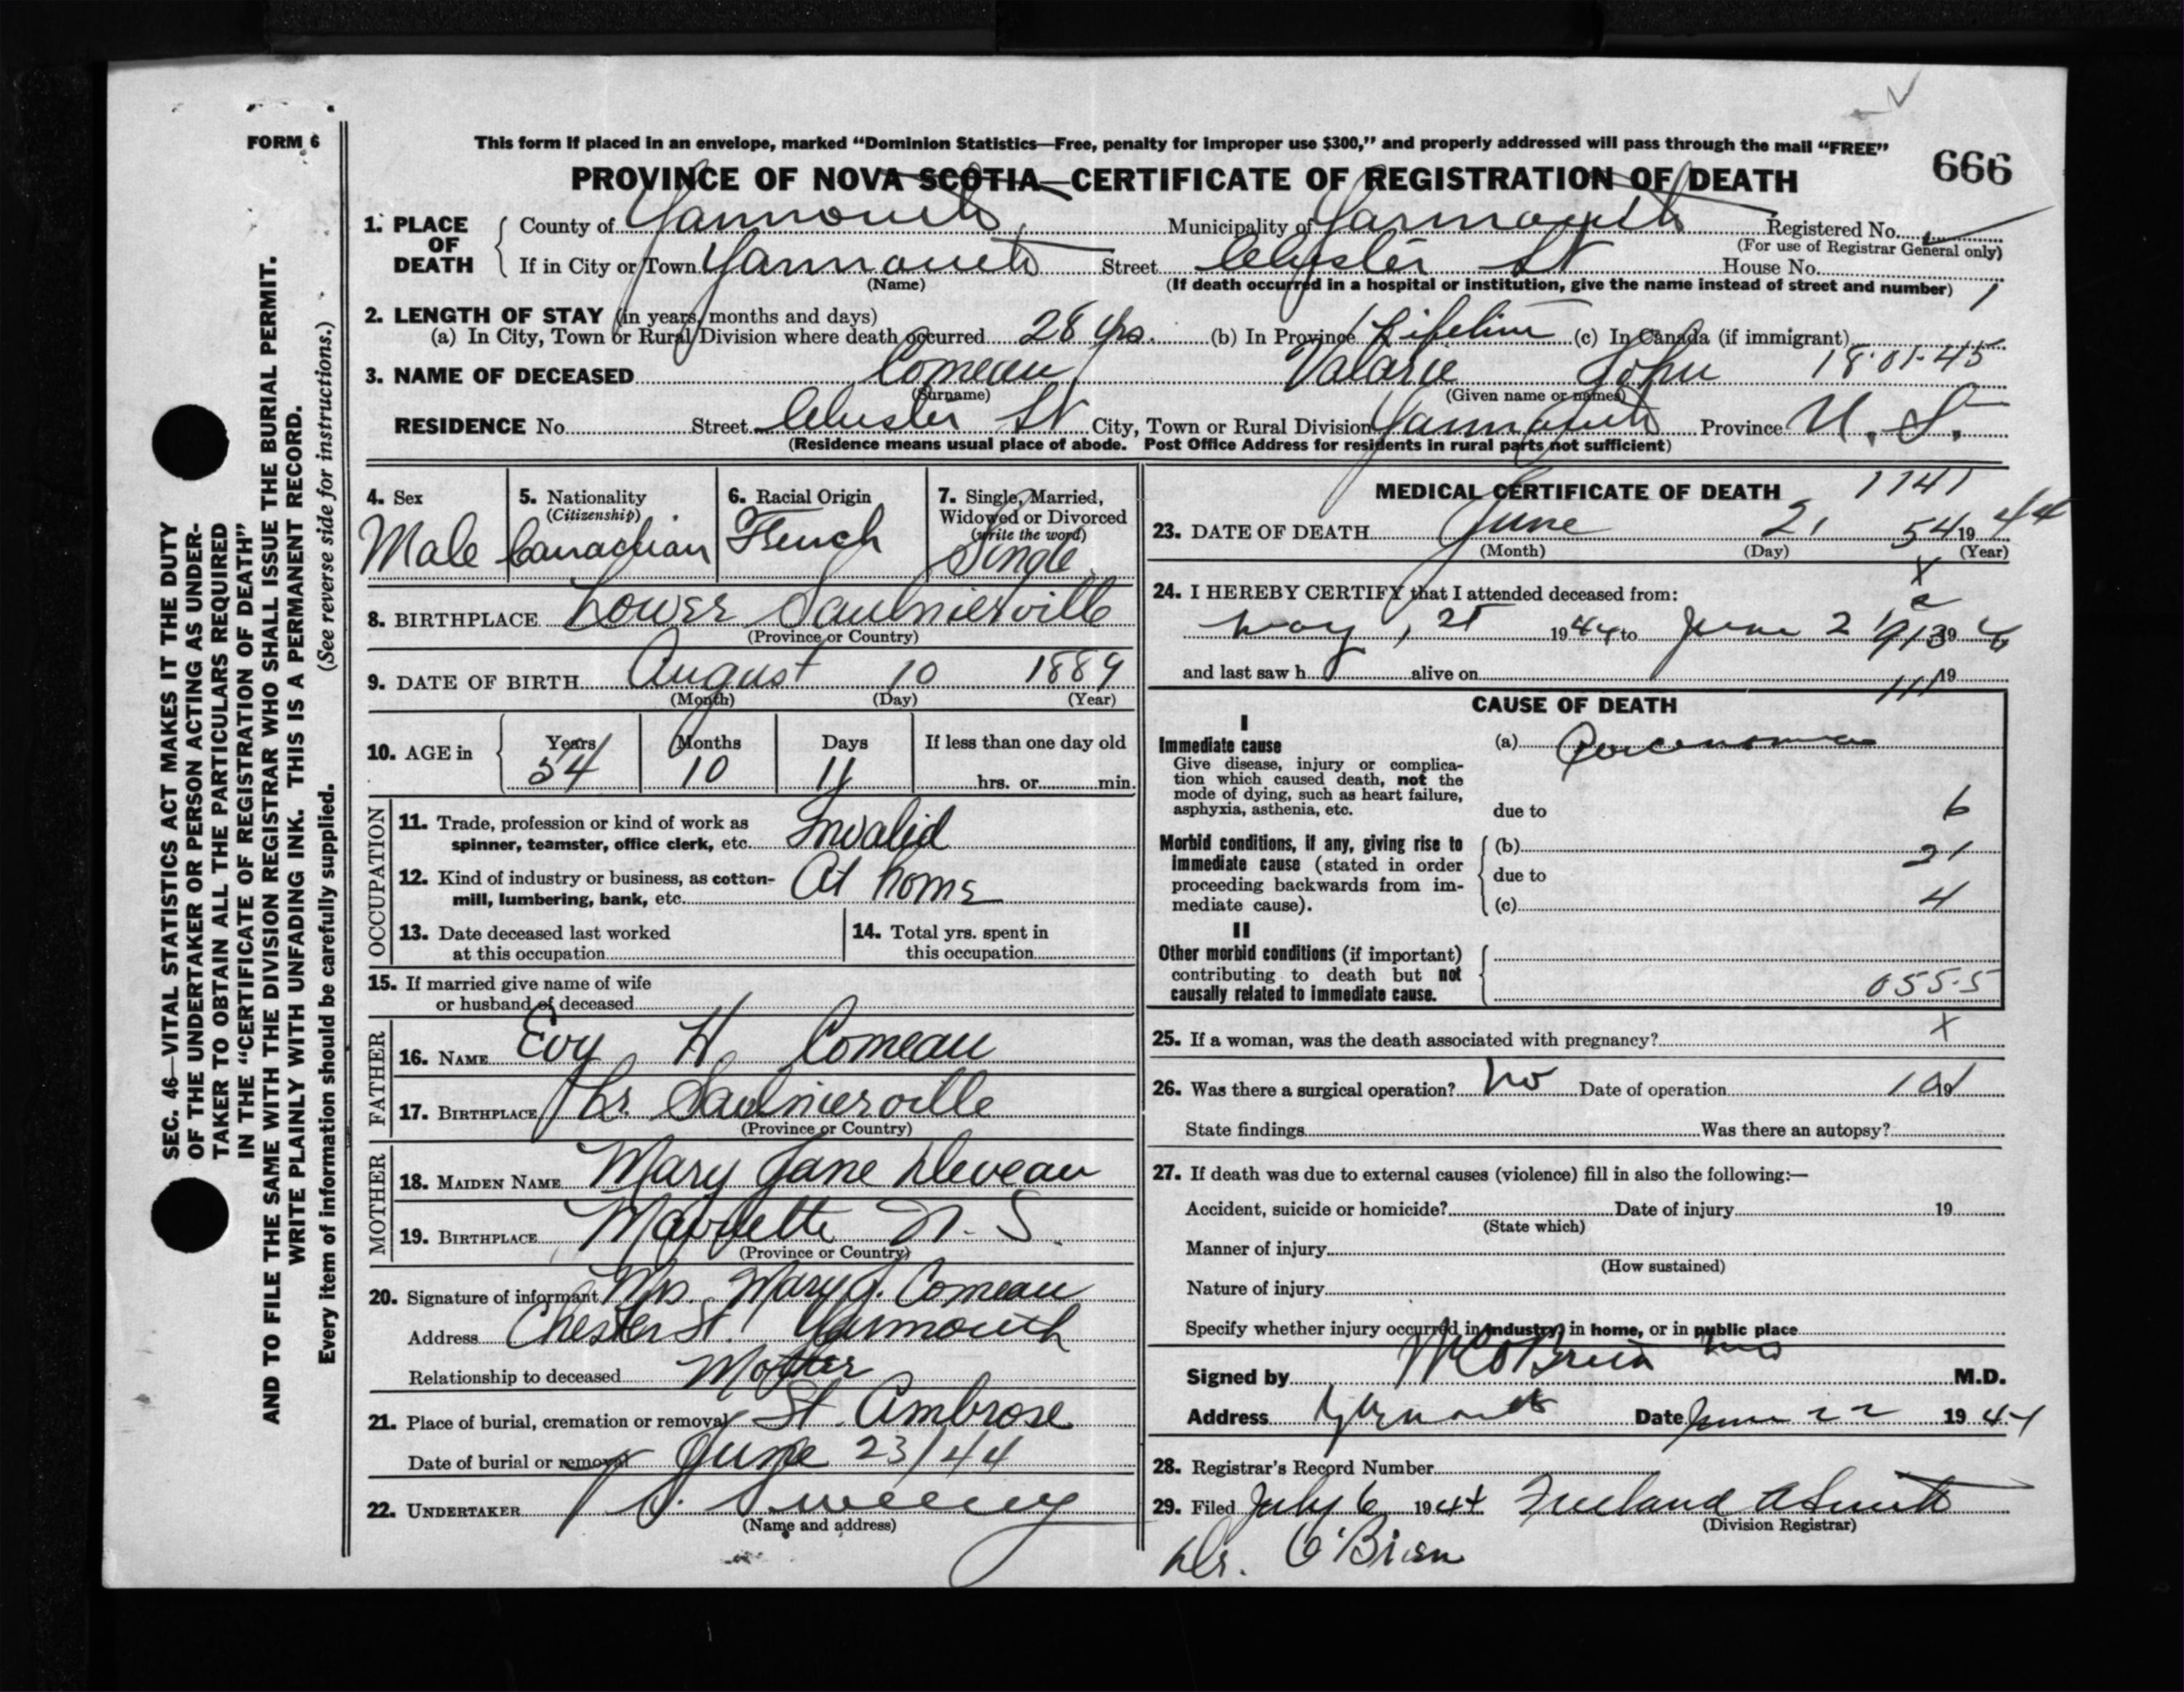 FORM 6
This form if placed in an envelope, marked "Dominion Statistics—Free, penalty for improper use $300," and properly addressed will pass through the mail "FREE"
PROVINCE OF NOVA SCOTIA—CERTIFICATE OF REGISTRATION OF DEATH
666
1. PLACE OF DEATH
County of Yarmouth, Municipality of Yarmouth Registered No.
(For use of Registrar General only)
If in City or Town Yarmouth Street Chester St House No.
(Name)
(If death occurred in a hospital or institution, give the name instead of street and number) 1
2. LENGTH OF STAY (in years, months and days)
(a) In City, Town or Rural Division where death occurred 28 yrs. (b) In Province Lifetime (c) In Canada (if immigrant)
3. NAME OF DECEASED Comeau Valarie John 18-01-45
(Surname) (Given name or names)
RESIDENCE No. Street Chester St City, Town or Rural Division Yarmouth Province N. S.
(Residence means usual place of abode. Post Office Address for residents in rural parts not sufficient)
4. Sex Male
5. Nationality (Citizenship) Canadian
6. Racial Origin French
7. Single, Married, Widowed or Divorced (write the word) Single
8. BIRTHPLACE Lower Saulnierville
(Province or Country)
9. DATE OF BIRTH August 10 1889
(Month) (Day) (Year)
10. AGE in Years Months Days If less than one day old
54 10 11 hrs. or min.
OCCUPATION
11. Trade, profession or kind of work as spinner, teamster, office clerk, etc. Invalid
12. Kind of industry or business, as cotton-mill, lumbering, bank, etc. At home
13. Date deceased last worked at this occupation
14. Total yrs. spent in this occupation
15. If married give name of wife or husband of deceased
FATHER
16. NAME Evy H. Comeau
17. BIRTHPLACE Lr. Saulnierville
(Province or Country)
MOTHER
18. MAIDEN NAME Mary Jane Deveau
19. BIRTHPLACE Mavillette N. S.
(Province or Country)
20. Signature of informant Mrs. Mary J. Comeau
Address Chester St. Yarmouth
Relationship to deceased Mother
21. Place of burial, cremation or removal St. Ambrose
Date of burial or removal June 23/44
22. UNDERTAKER Sweeny
(Name and address)
MEDICAL CERTIFICATE OF DEATH 1741
23. DATE OF DEATH June 21 54 19 44
(Month) (Day) (Year)
24. I HEREBY CERTIFY that I attended deceased from:
May 1944 to June 2
and last saw h alive on 19
CAUSE OF DEATH
I
Immediate cause
Give disease, injury or complication which caused death, not the mode of dying, such as heart failure, asphyxia, asthenia, etc.
(a) Carcinoma
due to 6
Morbid conditions, if any, giving rise to immediate cause (stated in order proceeding backwards from immediate cause).
(b) 21
due to
(c) 4
II
Other morbid conditions (if important) contributing to death but not causally related to immediate cause.
055.5
25. If a woman, was the death associated with pregnancy? X
26. Was there a surgical operation? No Date of operation 19
State findings Was there an autopsy?
27. If death was due to external causes (violence) fill in also the following:—
Accident, suicide or homicide? Date of injury 19
(State which)
Manner of injury
(How sustained)
Nature of injury
Specify whether injury occurred in industry, in home, or in public place
Signed by O'Brien M.D.
Address Yarmouth Date June 22 1944
28. Registrar's Record Number
29. Filed July 6 1944
(Division Registrar)
Dr. O'Brien
SEC. 46—VITAL STATISTICS ACT MAKES IT THE DUTY
OF THE UNDERTAKER OR PERSON ACTING AS UNDER-
TAKER TO OBTAIN ALL THE PARTICULARS REQUIRED
IN THE "CERTIFICATE OF REGISTRATION OF DEATH"
AND TO FILE THE SAME WITH THE DIVISION REGISTRAR WHO SHALL ISSUE THE BURIAL PERMIT.
WRITE PLAINLY WITH UNFADING INK. THIS IS A PERMANENT RECORD.
Every item of information should be carefully supplied. (See reverse side for instructions.)